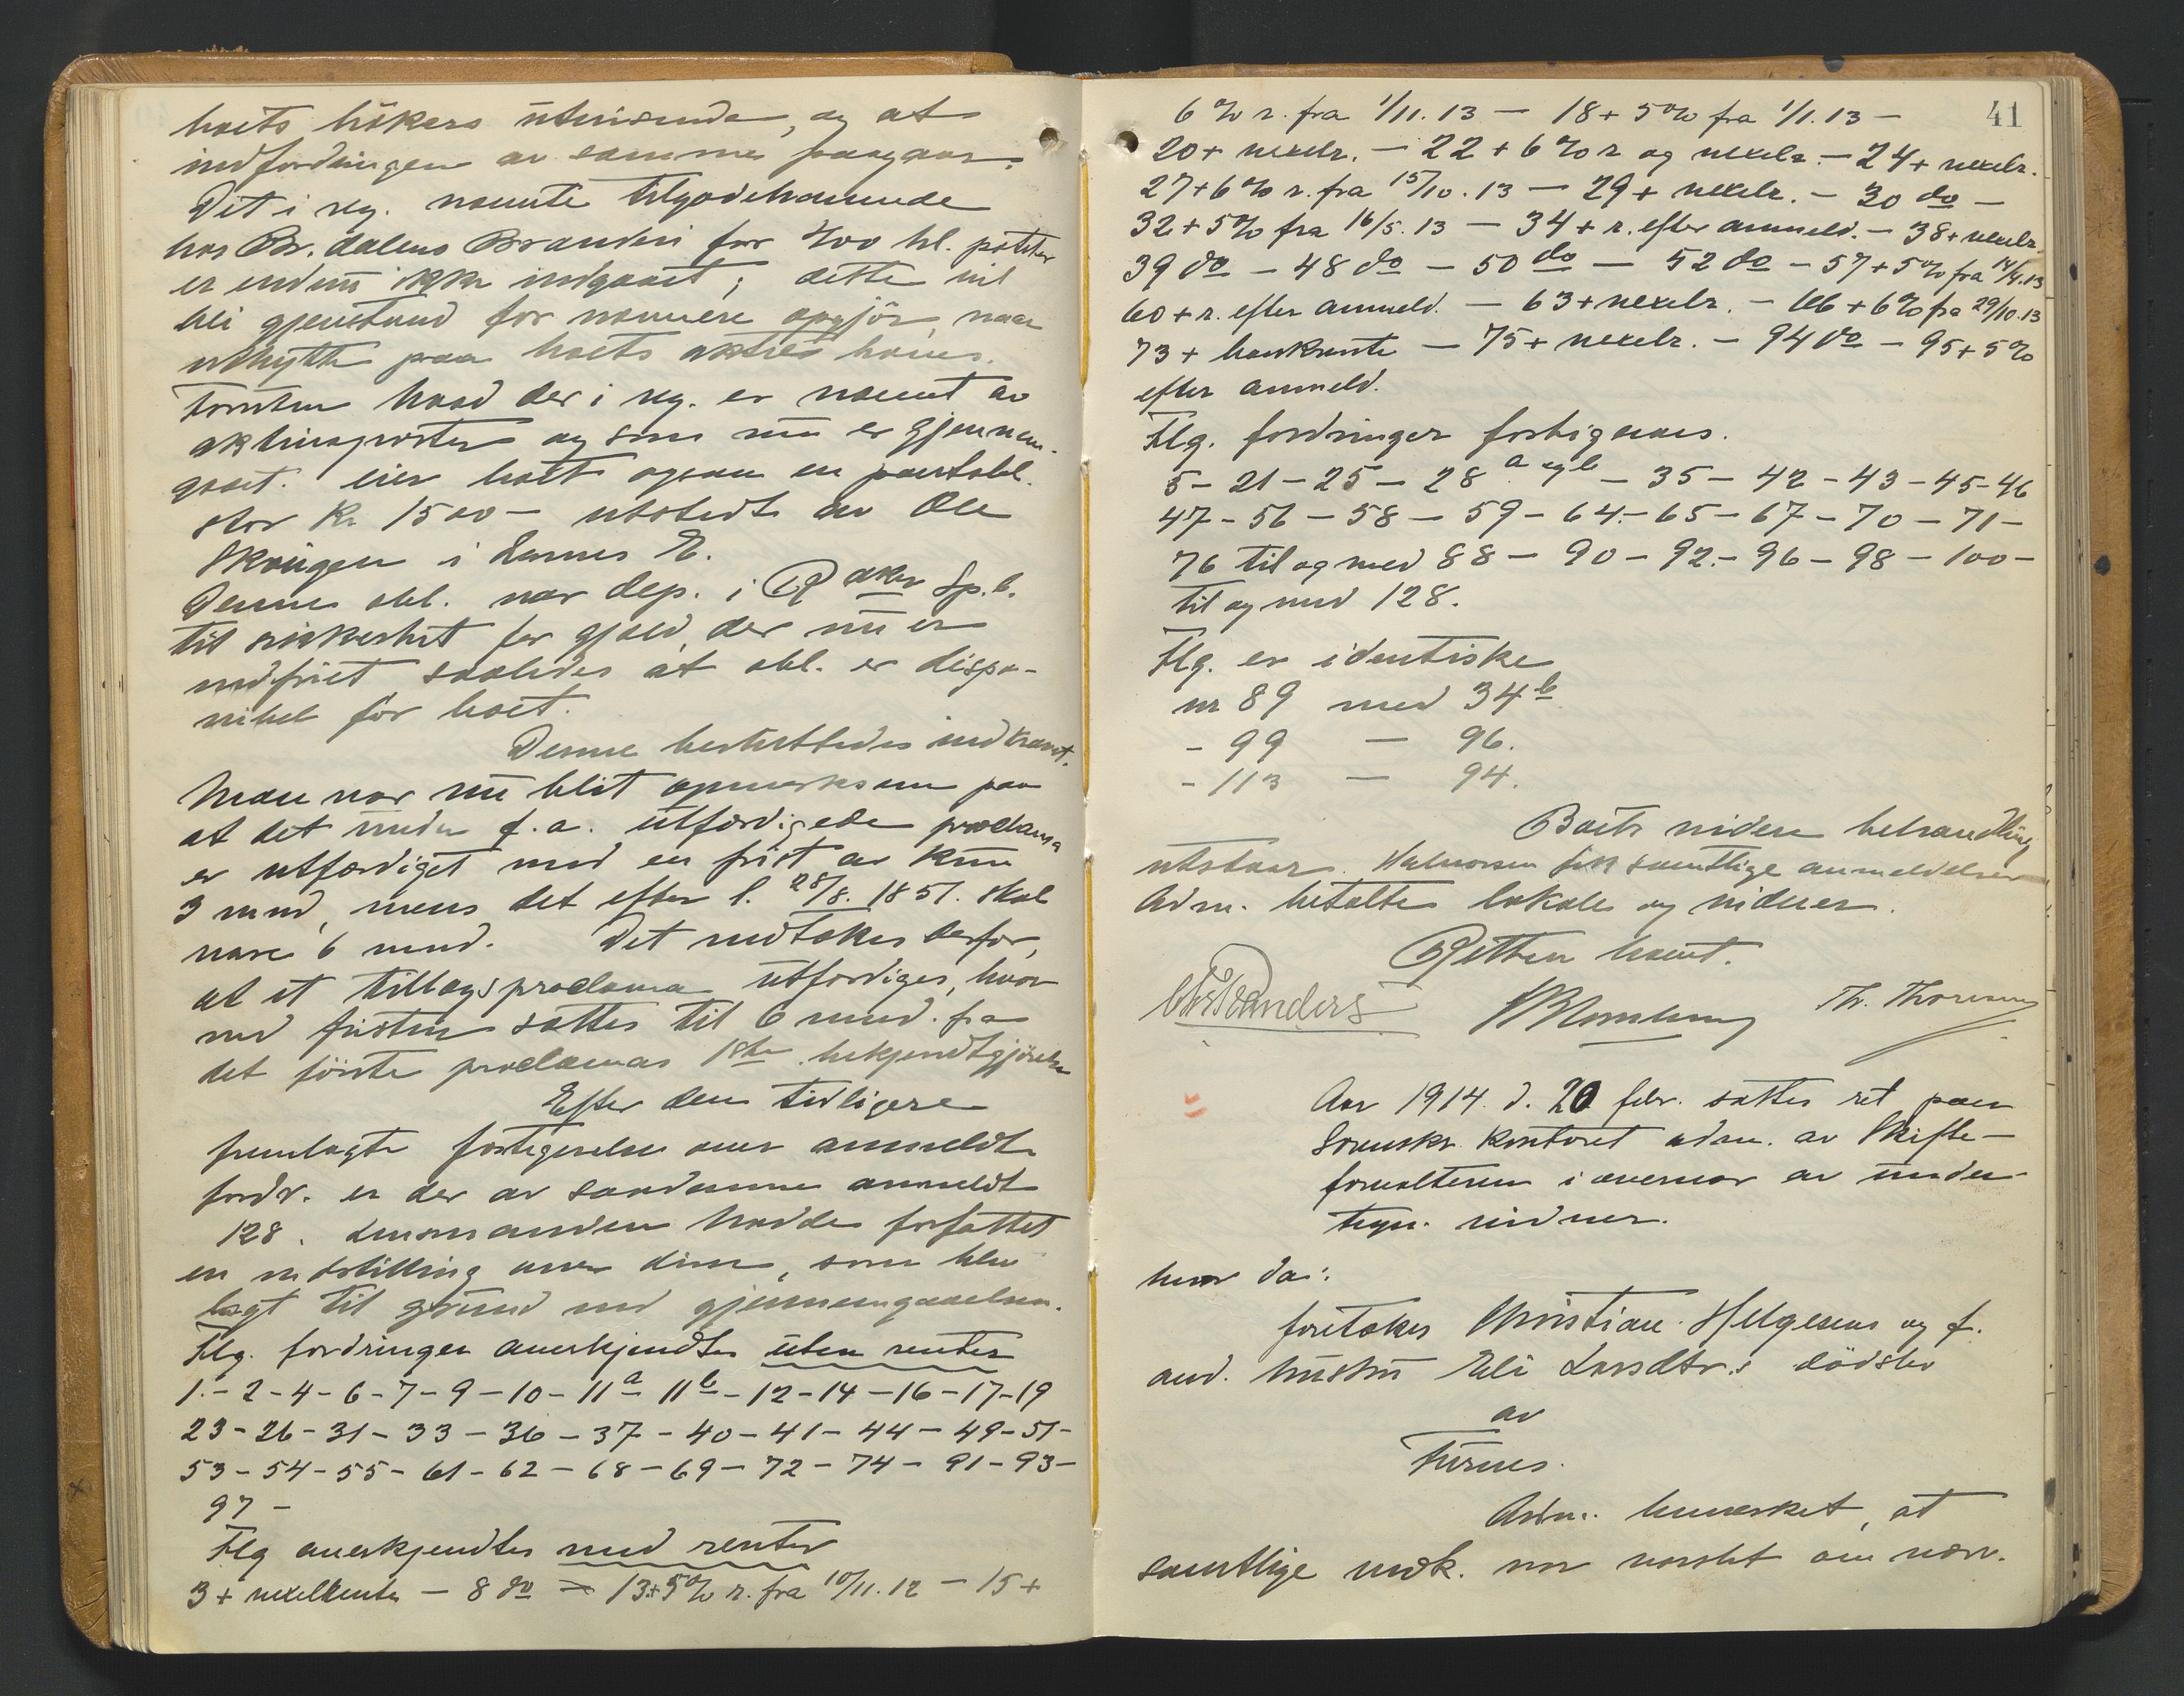 boets bökers utvisende, og at
inddrivningen av samme paagaar.
Det i reg. nævnte tilgodehavende
hos Br. dalens Brænderi for 400 hl. poteter
er endnu ikke indgaaet; dette vil
bli gjenstand for nærmere opgjör, naar
utbytte paa boets aktier haves.
Foruten hvad der i reg. er nævnt av
aktieposter og som nu er gjennem-
gaaet. eier boet ogsaa en pantobl.
stor Kr 1500 – utstedt av Ole
i E.
Denne obl. var dep. i Sp.b.
til sikkerhet for gjæld, der nu er
indfriet saaledes at obl. er dispo-
nibel for boet.
Denne besluttedes indkrævet.
Man var nu blit opmerksom paa
at det under f. a. utfærdigede proclama
er utfærdiget med en frist av kun
3 mnd, mens det efter l. 28/8. 1851. skal
være 6 mnd. Det vedtokes derfor,
at et tillægsproclama utfærdiges, hvor
ved fristen sættes til 6 mnd. fra
det förste proclamas 1ste bekjendtgjörelse
Efter den tidligere
fremlagte fortegnelse over anmeldte
fordr. er der av saadanne anmeldt
128. Lensmanden hadde forfattet
en indstilling over disse, som blev
lagt til grund ved gjennemgaaelsen.
Flg. fordringer anerkjendtes uten renter
1 – 2 – 4 – 6 – 7 – 9 – 10 – 11a 11b – 12 – 14 – 16 – 17 – 19
23 – 26 – 31 – 33 – 36 – 37 – 40 – 41 – 44 – 49 – 51 –
53 – 54 – 55 – 61 – 62 – 68 – 69 – 72 – 74 – 91 – 93 –
97 –
Flg anerkjendtes med renter
3 + vexelrente – 8 do – 13 + 5% r. fra 10/11. 12 – 15 +
41
6% r. fra 1/11. 13 – 18 + 5% fra 1/1. 13 –
20 + vexelr. – 22 + 6% r og vexelr. – 24 + vexelr.
27 + 6% r. fra 15/10. 13 – 29 + vexelr. – 30 do –
32 + 5% fra 16/5. 13 – 34 + r. efter anmeld. – 38 + vexelr
39 do – 48 do – 50 do – 52 do – 57 + 5% fra 14/4. 13
60 + r. efter anmeld. – 63 + vexelr. – 66 + 6% fra 29/10. 13
73 + bankrente – 75 + vexelr. – 94 do – 95 + 5%
efter anmeld.
Flg. fordringer forbigaaes.
5 – 21 – 25 – 28 a og b – 35 – 42 – 43 – 45 – 46
47 – 56 – 58 – 59 – 64 – 65 – 67 – 70 – 71 –
76 til og med 88 – 90 – 92 – 96 – 98 – 100 –
til og med 128.
Flg. er identiske
nr 89 med 34 b
– 99 – 96.
– 113 – 94.
Boets videre behandling
utstaar. Halvorsen fik samtlige anmeldelser
Adm. betalte lokale og vidner.
Retten hævet.
Th. Thoresen
Aar 1914 d. 20 febr. sattes ret paa
Sorenskr. kontoret adm. av Skifte-
forvalteren i overvær av under
tegn. vidner.
hvor da:
foretokes Christian Helgesens og f.
avd. hustru Eli Larsdtr.s dödsbo
av
Furnes.
Adm. bemerket, at
samtlige vedk. var varslet om nærv.